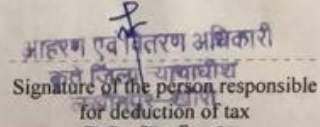 आहरण एवं वितरण अधिकारी
कृते जिला न्यायाधीश
Signature of the person responsible
for deduction of tax